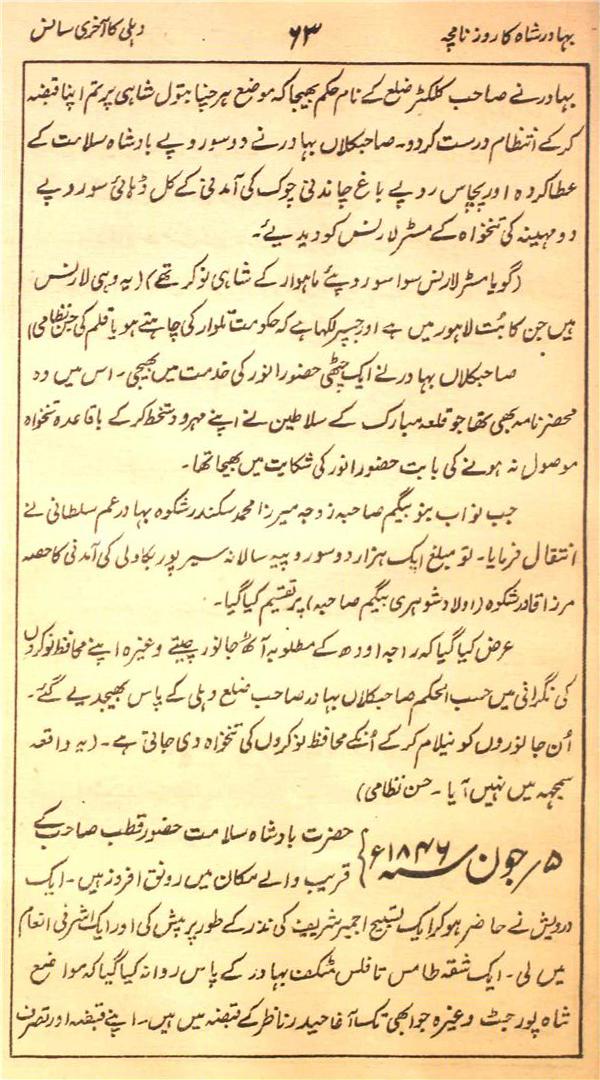 بہادر شاہ کا روزنامچہ ۶۳ دہلی کا آخری سانس
بہادر نے صاحب کلکٹر ضلع کے نام حکم بھیجا کہ موضع ہرچنپا بتول شاہی پر تم اپنا قبضہ
کر کے انتظام درست کر دو۔ صاحبکلاں بہادر نے دو سو روپے بادشاہ سلامت کے
عطا کردہ اور پچاس روپے باغ چاندنی چوک کی آمدنی کے کل ڈہائی سو روپے
دو مہینہ کی تنخواہ کے مسٹر لارنس کو دیدیئے۔
(گویا مسٹر لارنس سوا سو روپئے ماہوار کے شاہی نوکر تھے) (یہ وہی لارنس
ہیں جن کا بُت لاہور میں ہے اور جسپر لکھا ہے کہ حکومت تلوار کی چاہتے ہو یا قلم کی حسن نظامی)
صاحبکلاں بہادر نے ایک چٹھی حضور انور کی خدمت میں بھیجی۔ اس میں وہ
محضر نامہ بھی تھا جو قلعہ مبارک کے سلاطین نے اپنے مہر و دستخط کر کے باقاعدہ تنخواہ
موصول نہ ہونے کی بابت حضور انور کی شکایت میں بھیجا تھا۔
جب نواب بنو بیگم صاحبہ زوجہ میرزا محمد سکندر شکوہ بہادر عم سلطانی نے
انتقال فرمایا۔ تو مبلغ ایک ہزار دو سو روپیہ سالانہ سیر پور بکاولی کی آمدنی کا حصہ
مرزا قادر شکوہ (اولاد شوہری بیگم صاحبہ) پر تقسیم کیا گیا۔
عرض کیا گیا کہ راجہ اودھ کے مطلوبہ آٹھ جانور چیتے وغیرہ اپنے محافظ نوکروں
کی نگرانی میں حسب الحکم صاحبکلاں بہادر صاحب ضلع دہلی کے پاس بھیجدیے گئے۔
اُن جانوروں کو نیلام کر کے اُنکے محافظ نوکروں کی تنخواہ دی جاتی ہے۔ (یہ واقعہ
سمجھہ میں نہیں آیا۔ حسن نظامی)
۵/ جون سنہ ۱۸۴۶ء } حضرت بادشاہ سلامت حضور قطب صاحب کے
قریب والے مکان میں رونق افروز ہیں۔ ایک
درویش نے حاضر ہو کر ایک تسبیح اجمیر شریف کی نذر کے طور پر پیش کی اور ایک اشرفی انعام
میں لی۔ ایک شقہ طامس تافلس مٹکف بہادر کے پاس روانہ کیا گیا کہ مواضع
شاہ پور جٹ وغیرہ جو ابھی تک آغا حیدر ناظر کے قبضہ میں ہیں۔ اپنے قبضہ اور تصرف